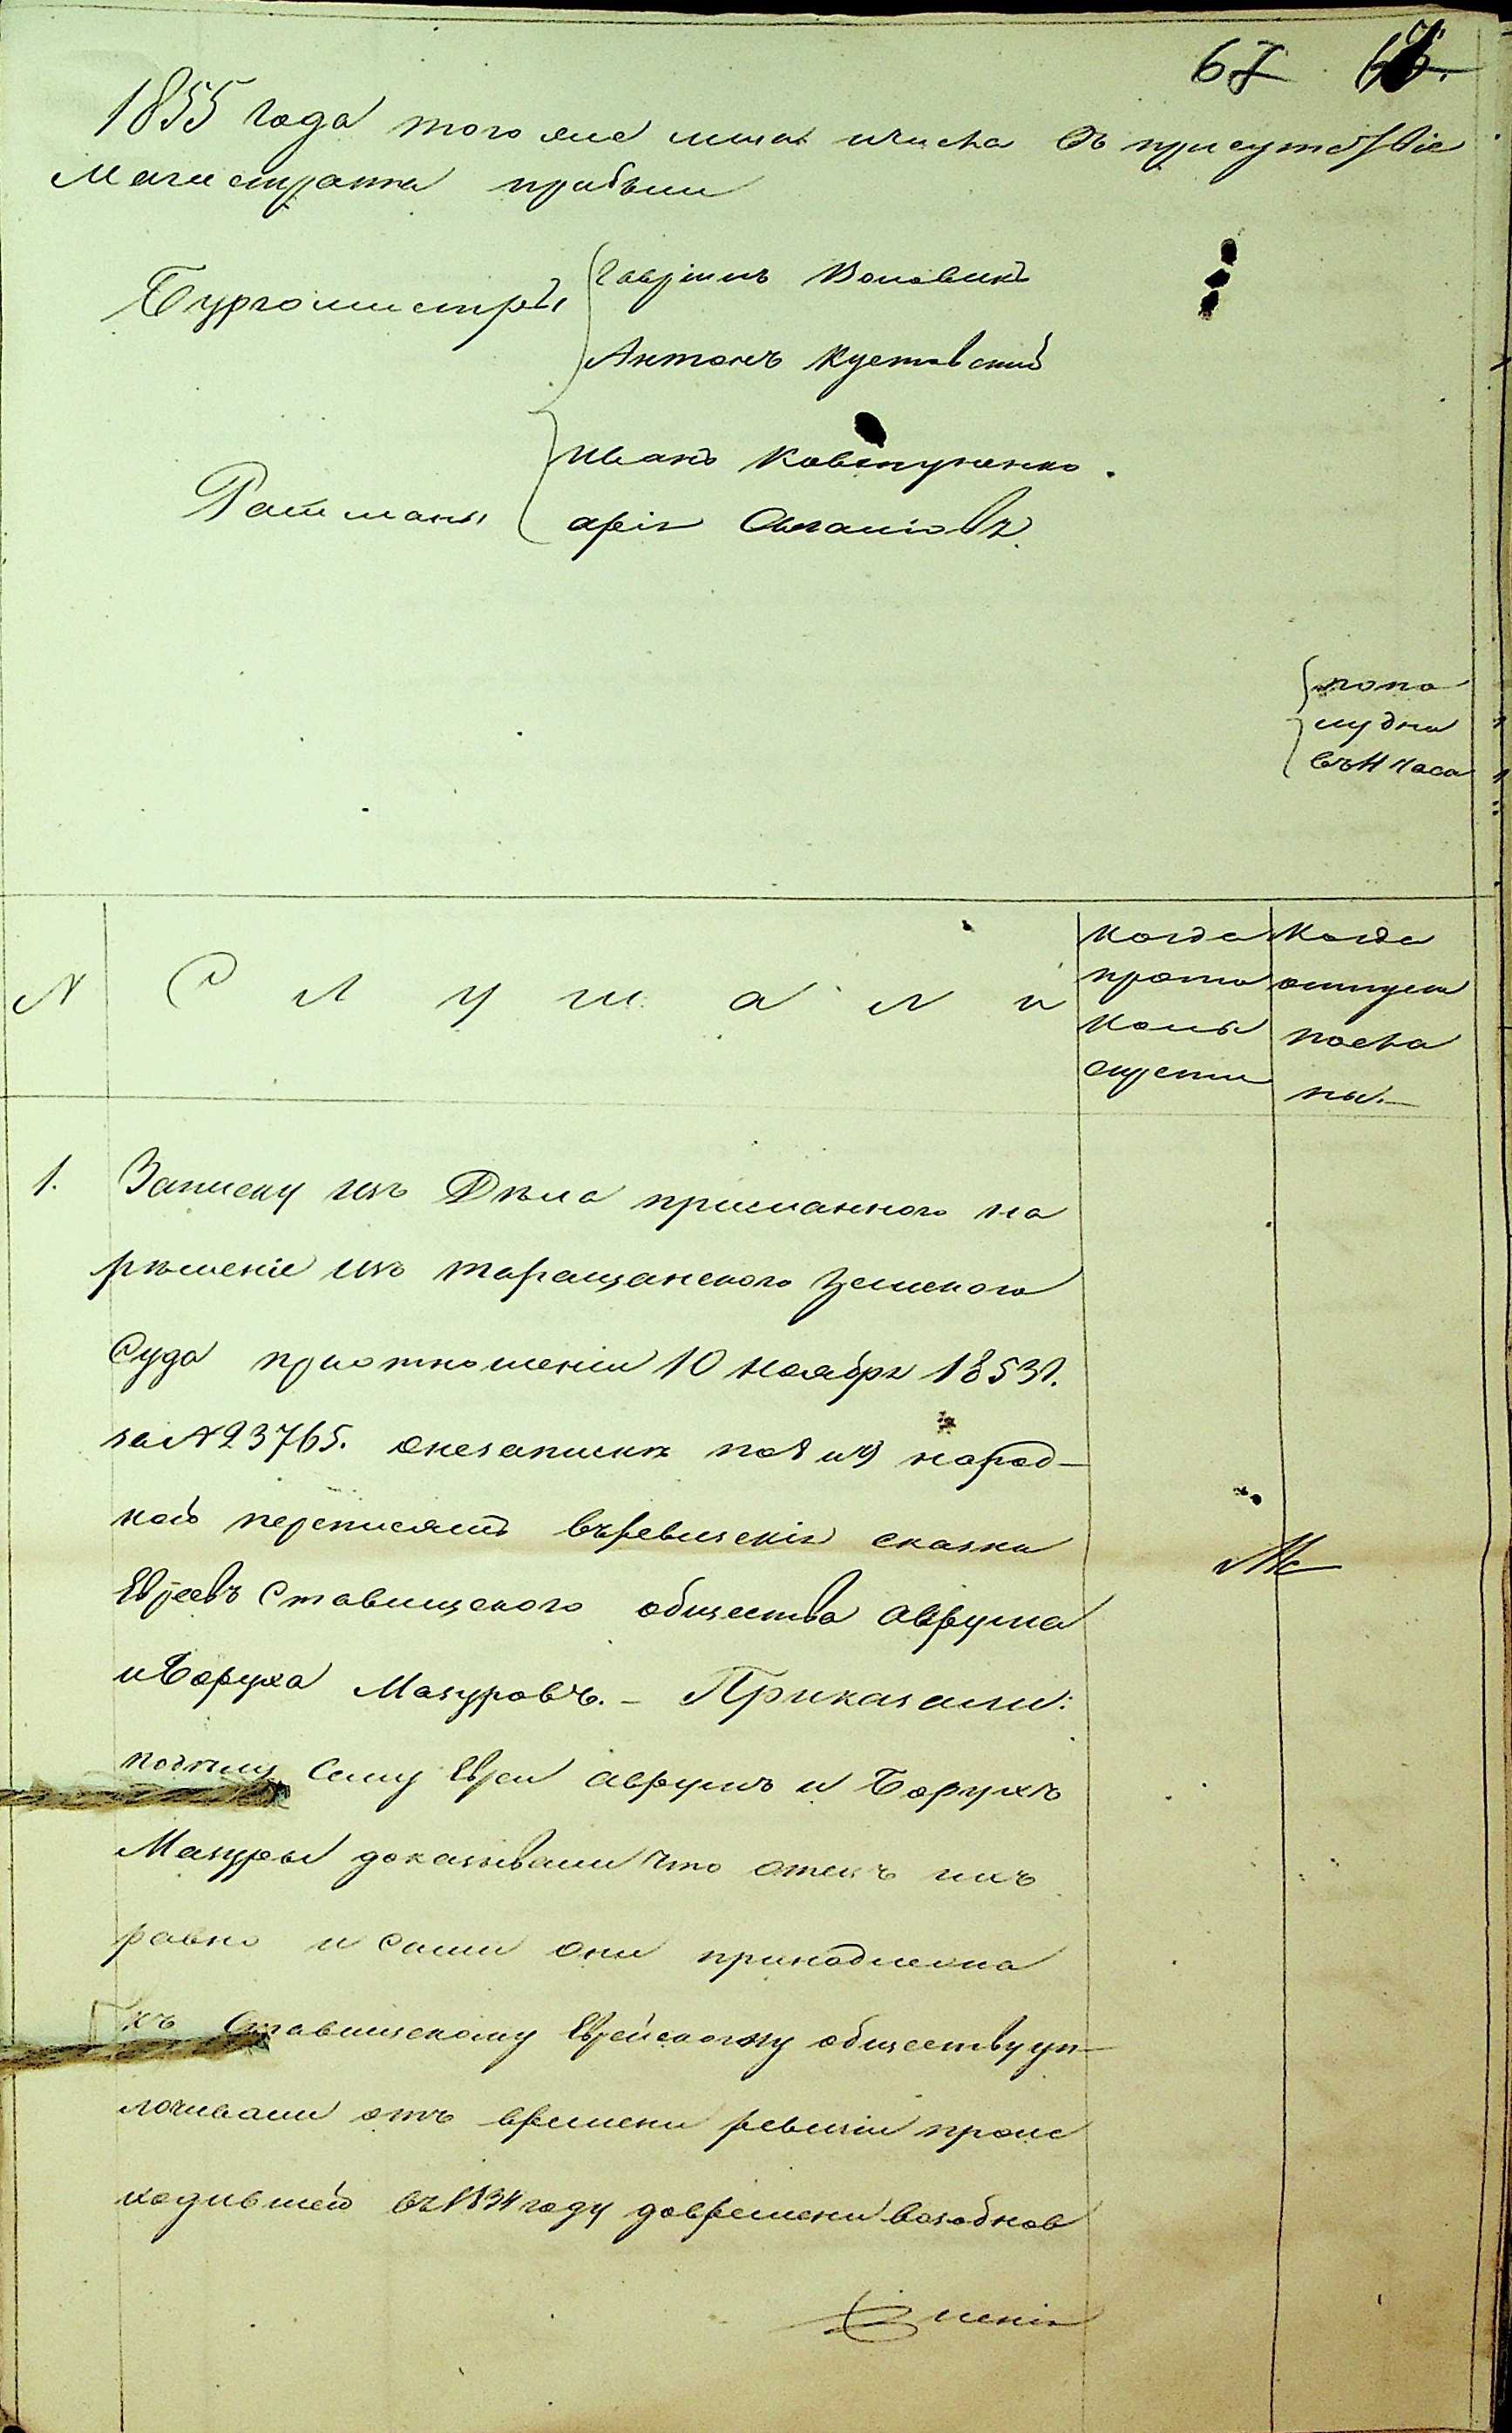 67
1855 года того же мца и числа въ присутствіе
Магистрата прибыли
Бургомистры
Гаврiилъ Воловикъ
Антонъ Кустовскій
Ратманы
Иванъ Ковтуненко.
попо
лудни
въ
N
Слушали
Когда
прото
колы
скрепл
Когда
отпуск
посла
ны.
1. Записку изъ Дѣла присланного на
рѣшеніе изъ Таращанского Земского
Суда при отношеніи 10 Ноября 1853 г.
за N 23765. о незапискѣ по 8 и 9 народ-
ной переписямъ въ ревизскія сказки
Евреевъ Ставищского общества Аврума
и Боруха Мазуровъ. - Приказали:
по дѣлу сему Евреи Аврумъ и Борухъ
Мазуры доказывали что отецъ ихъ
равно и сами они принадлежа
къ Ставищскому Еврейскому обществу уп-
лочивали отъ времени ревизіи проис
ходившей въ 1834 году до времени возобнов
ленія